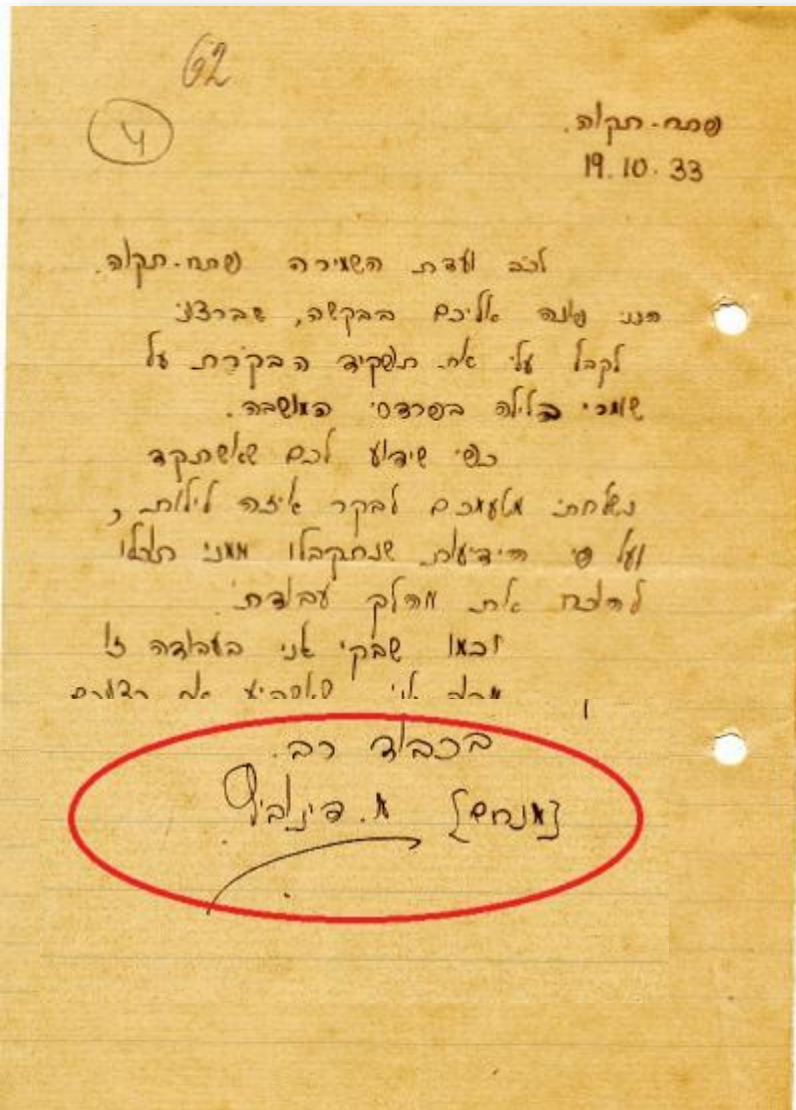 62
4
פתח-תקוה.
19.10.33
לכב' ועדת השמירה פתח-תקוה.
הנני פונה אליכם בבקשה, שברצני
לקבל עלי את תפקיד הבקרת על
שומרי הלילה בפרדסי המושבה.
כפי שידוע לכם שאשתקד
נשלחתי מטעמכם לבקר איזה לילות,
ועל פי הידיעות שנתקבלו ממני תוכלו
להוכח את מהלך עבודתי.
וכמו שבקי אני בעבודה זו
אני שאשביע את רצונכם
בכבוד רב.
[מנחם] מ.